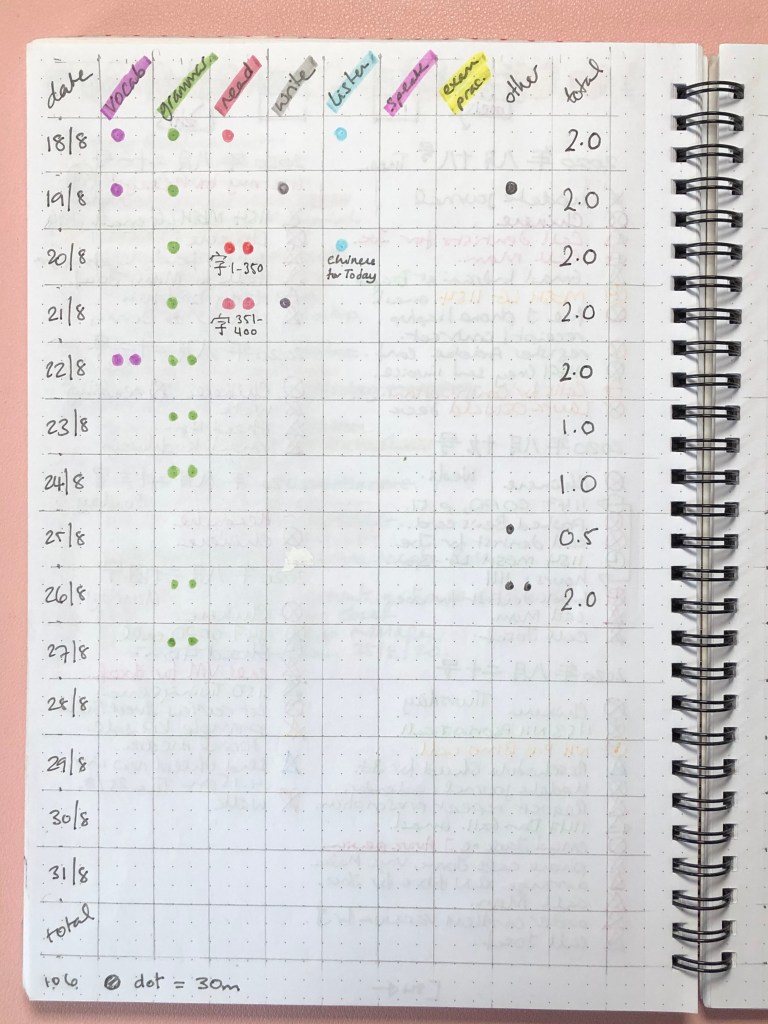 date vocab grammar read write listen speak exam prac. other total
18/8 2.0
19/8 2.0
20/8 字 1-350 Chinese for Today 2.0
21/8 字 351-400 2.0
22/8 2.0
23/8 1.0
24/8 1.0
25/8 0.5
26/8 2.0
27/8
28/8
29/8
30/8
31/8
total
106 dot = 30m